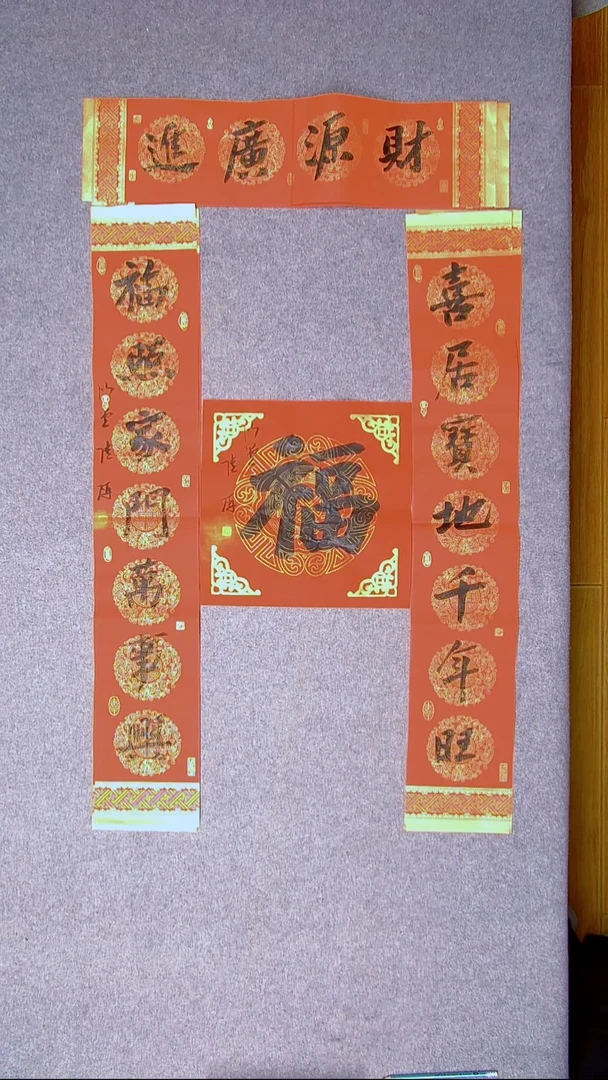 財源廣進
喜居寶地千年旺
福照家門萬事興
福